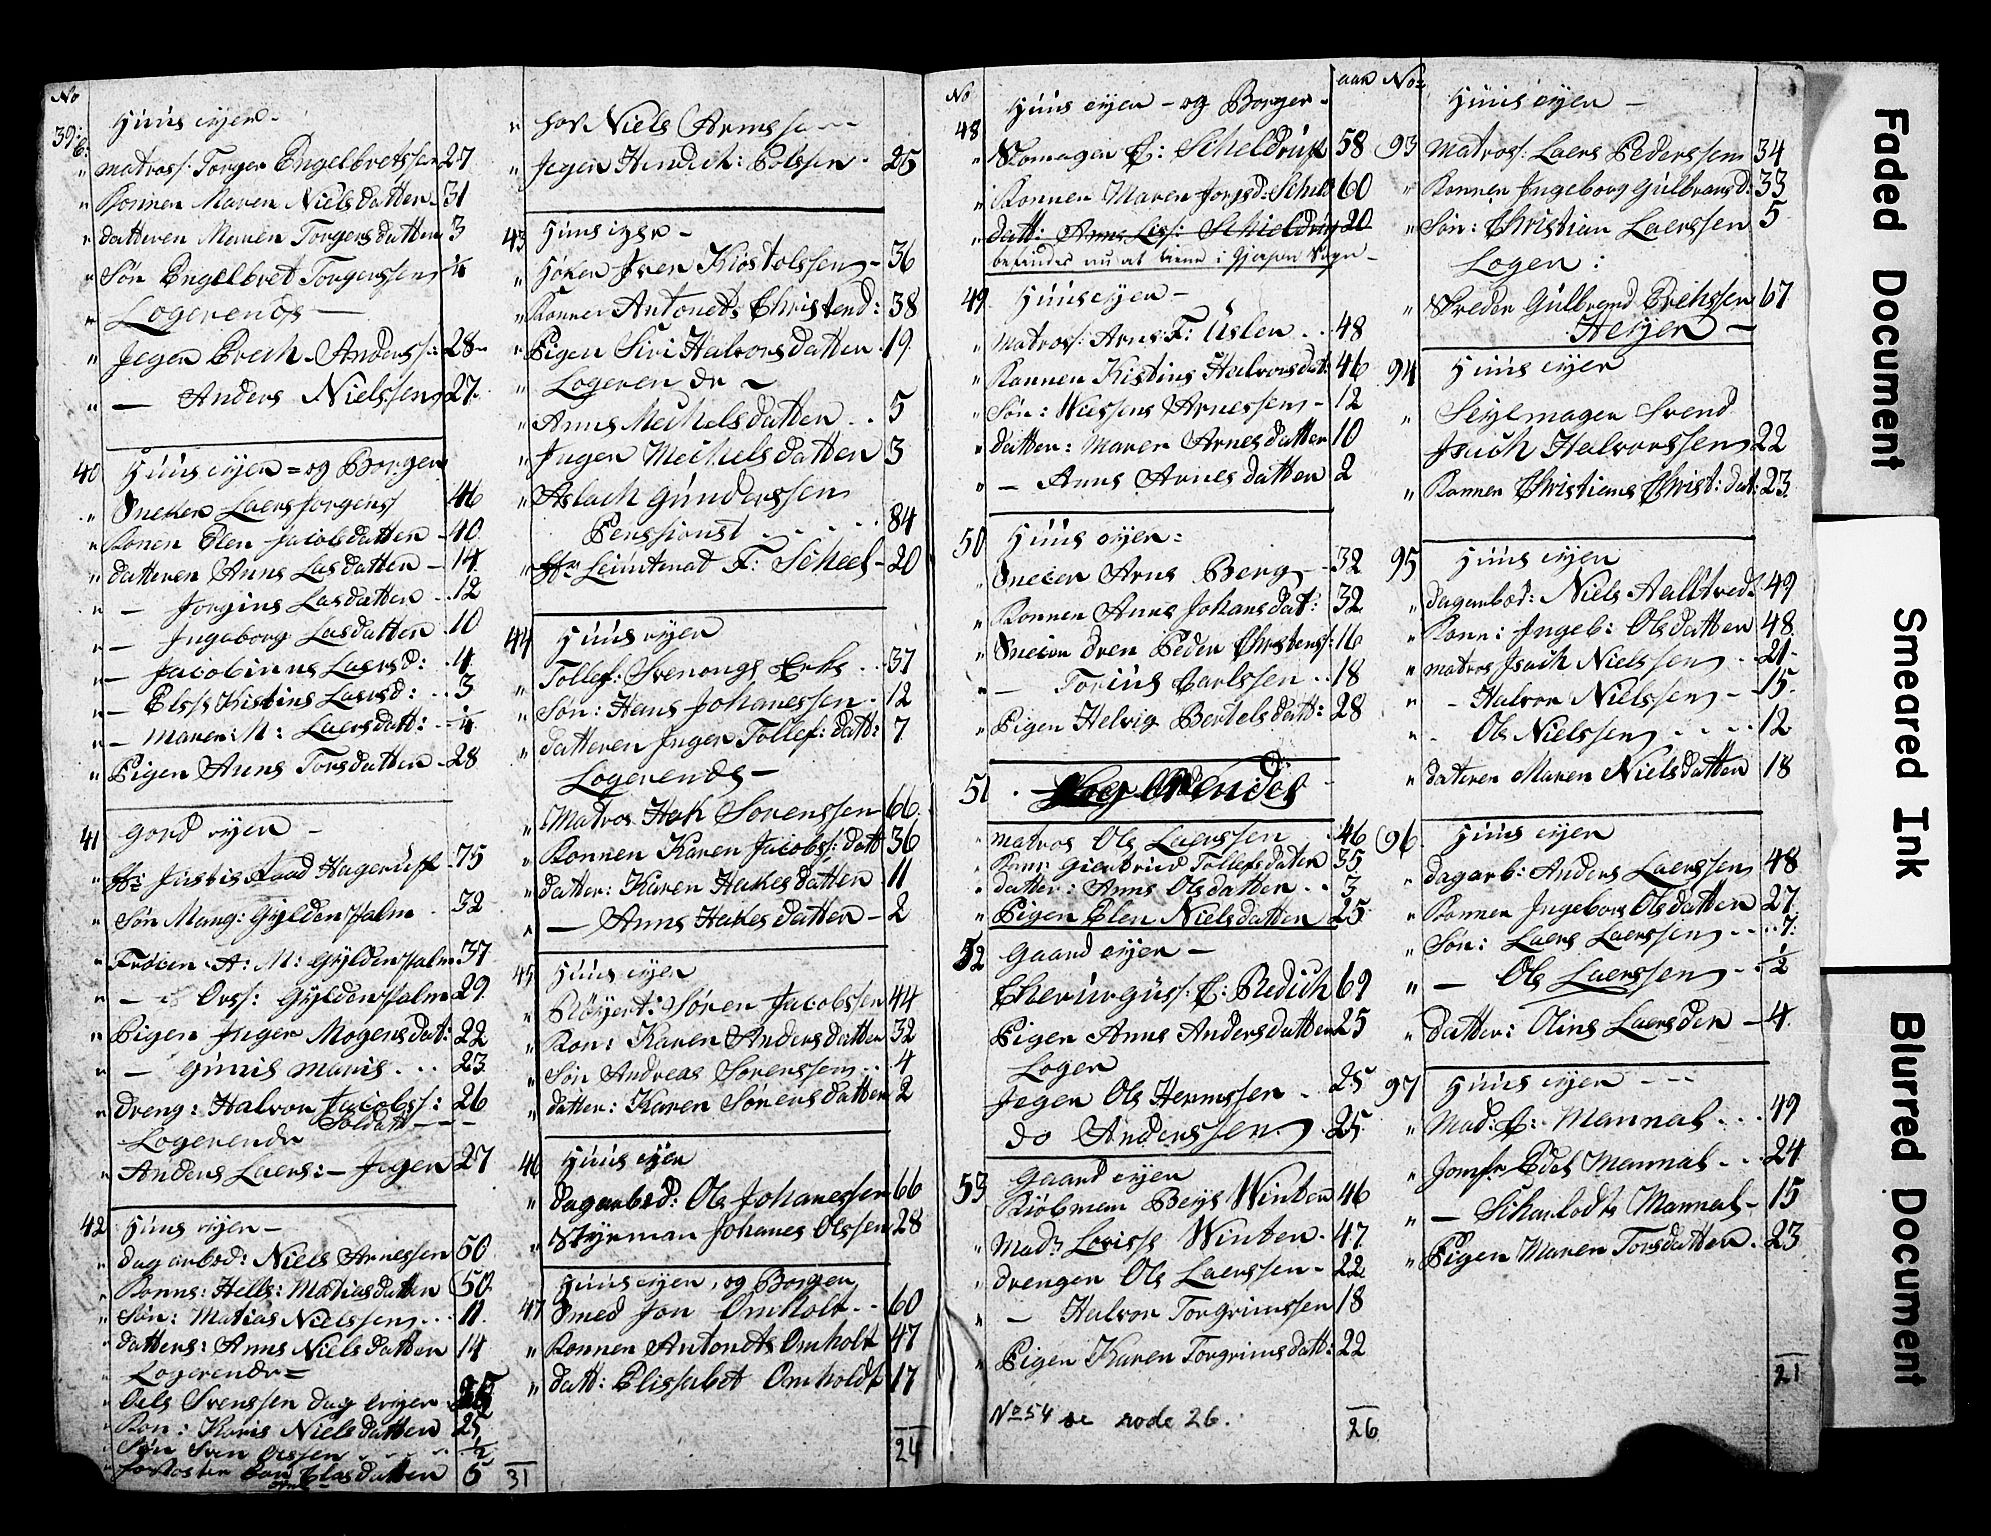 No
39: Huus eyer -
b:
" Matros: Torger Engelbretssen 27
" Konnen Maren Nielsdatter 31
" datteren Maren Torgersdatter 3
" Søn Engelbret Torgerssen 1/4
" Logerende -
" Jeger Erich Anderss: 28
" — Anders Nielssen 27
40 Huus eyer = og Borger
" Sneker Laers Jorgens 46
" Konen Elen Jacobsdatter 40
" datteren Anne Lasdatter 14
" — Jorgine Lasdatter 12
" — Ingeborg Lasdatter 10
" — Jacobinne Laersd: 4
" — Elss Kistine Laersd: 3
" — Maren: M: Laersdatt: 1/4
" Pigen Anne Torsdatter 28
41 gord eyer -
" Hr Justis Raad Hagerup 75
" Søn Mang: Gyldenpalm 32
" Frøken A: M: Gyldenpalm 37
" — Gyldenpalm 29
" Pigen Inger Mogensdat: 22
" — Gunil Marie 23
" dreng: Halvor Jacobss: 26
Soldatt
Logerende
" Anders Laers: - Jeger 27
42 Huus eyer -
" dagarbed: Niels Arnessen 50
" Konne: Helle: Matiasdatter 50
" Søn: Matias Nielssen 11
" datters: Anne Nielsdatter 14
" Logerende =
Oele Svenssen dag
" Kon: Karis Nielsdatter 25
" Søn Sven Olssen 1/2
" datter 5
31
" Niels Arnessen
" Jeger Hendich: Polssen 25
43 Huus eyer -
" Høker Iver Kiostolssen 36
" Konnen Antonete Christend: 38
" Pigen Siri Halvorsdatter 19
" Logerende -
" Anne Mechelsdatter 5
" Inger Mechelsdatter 3
" Aslach Gunderssen
Penssionst 84
" Hr Leiutenat F: Scheel 20
44 Huus eyer
" Tollef: Svenongs Enke 37
" Søn: Hans Johanessen 12
" datteren Inger Tollef: datt: 7
Logerende -
" Matros Hak Sorenssen 66
" Konnen Karen Jacobs: datt 36
" datter: Karen Hakesdatter 11
" — Anne Hakesdatter 2
45 Huus eyer
" Søren Jacobssen 44
" Kon: Karen Andersdatter 32
" Søn Andreas Sorenssen 4
" datter: Karen Sørensdatter 2
46 Huus eyer
" dagarbed: Ole Johanessen 66
" Styrman Johanes Olssen 28
Huus eyer, og Borger
47 Smed Jon Omholt 60
" Konnen Antonete Omholt 47
" datt: Elissabet Omholdt 17
24
No aar
48 Huus eyer - og Borger -
" Skomager C: Scheldrup 58
" Konnen Maren Jorgsd: Schel 60
" datt: Anne Liss: Schieldrup 20
befindes nu at tiene i Gjerpen Sogn -
49 Huus eyer -
" Matros: Arne F: Uslen 48
" Konnen Kistine Halvorsdat: 46
" Søn: Arnessen 12
" datter: Maren Arnesdatter 10
" — Anne Arnesdatter 2
50 Huus eyer:
" Sneker Arne Berg 32
" Konnen Anne Johansdat: 32
" Sneker dren Peder Christenss: 16
" — Torius Carlssen 18
" Pigen Helvig Bertelsdatt: 28
51 Logerendes
" matros Ole Laerssen 46
" Kon: Giertrud Tollefsdater 35
" datter: Anne Olsdatter 3
" Pigen Elen Nielsdatter 25
52 Gaard eyer -
Cherurgus: C: Redich 69
Pigen Anne Andersdatter 25
Loger
Jeger Ole Hermssen 25
do Anderssen 25
53 Gaard eyer
Kiobman Beys Winter 46
" Madm Lovisse Winter 47
" drengen Ole Laerssen 22
" — Halvor Torgrimssen 18
" Pigen Karen Torgrimsdatt: 22
No 54 se rode 26.
26
No Huus eyer -
93 Matros: Laers Pederssen 34
" Konnen Ingeborg Gulbransd: 33
" Søn: Christian Laerssen 5
Loger:
" Skreder Gulbrand Erichssen 67
Heyer -
94 Huus eyer
" Seylmager Svend
Isach Halvorssen 22
" Konnen Christiane Christ: dat: 23
95 Huus eyer
" dagarbed: Niels 49
" Konn: Ingeb: Olsdatter 48
" matros Isach Nielssen 21
" - Halvor Nielssen 15
" - Ole Nielssen 12
" dateren Maren Nielsdatter 18
96 Huus eyer
" dagarb: Anders Laerssen 48
" Konnen Ingebor Olsdatter 27
" Søn: Laers Laerssen 7
" — Ole Laerssen 1/2
" datter: Oline Laersder 4
97 Huus eyer
" Mad: C: Mannal 49
" Jomfr Edel Mannal 24
" — Scharlodte Mannal 15
" Pigen Maren Torsdatter 23
21
Faded Document
Smeared Ink
Blurred Document